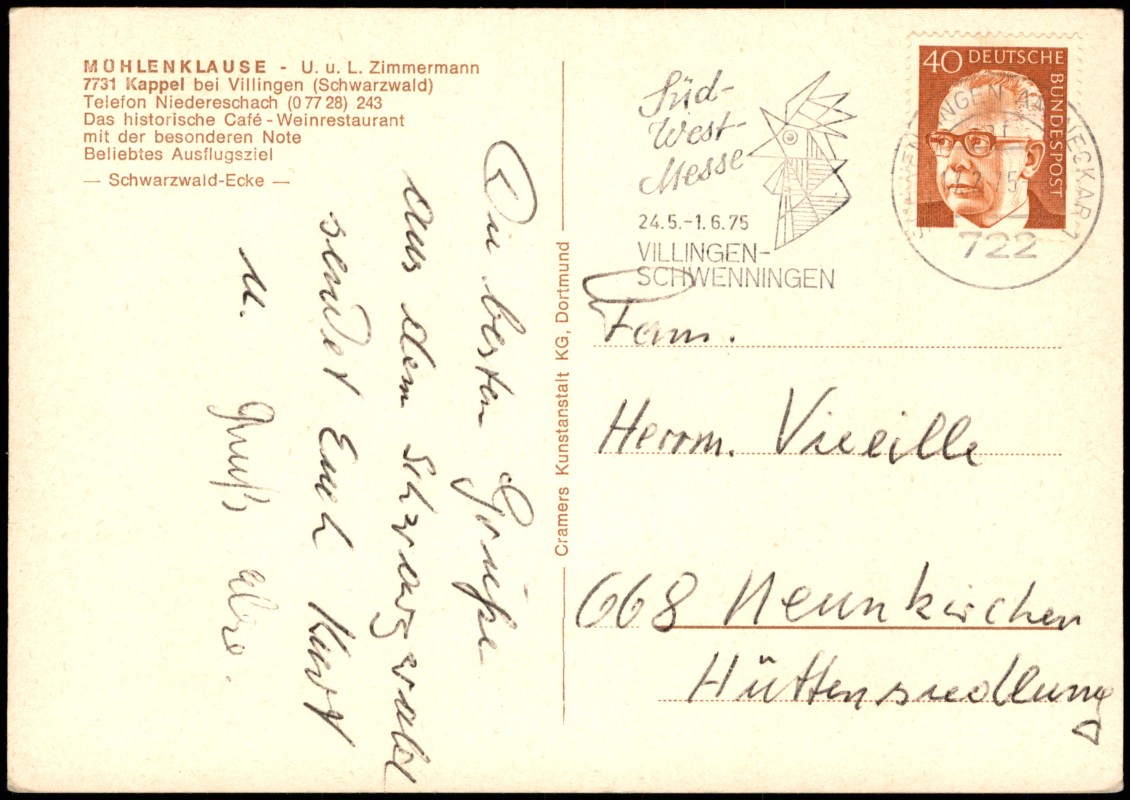 MÜHLENKLAUSE - U. u. L. Zimmermann
7731 Kappel bei Villingen (Schwarzwald)
Telefon Niedereschach (0 77 28) 243
Das historische Café - Weinrestaurant
mit der besonderen Note
Beliebtes Ausflugsziel
— Schwarzwald-Ecke —
Die besten Grüße
aus dem Schwarzwald
sendet Euch Kurt
u.
Gruß,
Cramers Kunstanstalt KG, Dortmund
Süd-
West-
Messe
24.5.-1.6.75
VILLINGEN-
SCHWENNINGEN
40 DEUTSCHE
BUNDESPOST
722
Fam.
Herrm. Vieeille
668 Neunkirchen
Hüttensiedlung